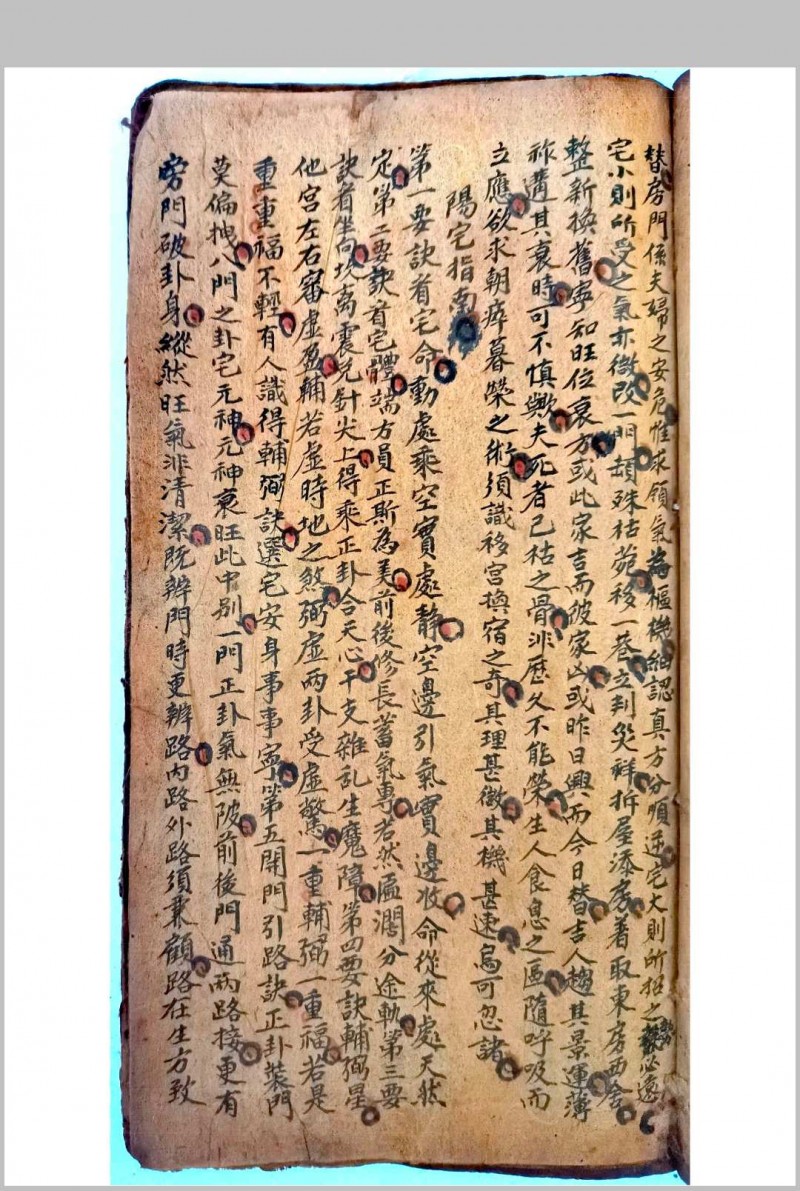 替房門係夫婦之安危惟求領氣為樞機細認真方分順逆宅大則所招之勢必遠
宅小則所受之氣亦微改一門頓殊枯菀移一巷立判災祥拆屋添房着取東房西舍
整新換舊寧知旺位衰方或此家吉而彼家凶或昨日興而今日替吉人趨其景運薄
祚遘其衰時可不慎歟夫死者已枯之骨非歷久不能榮生人食息之區隨呼吸而
立應欲求朝瘁暮榮之術須識移宮換宿之奇其理甚微其機甚速烏可忽諸
陽宅指南
第一要訣看宅命動處乘空實處靜空邊引氣實邊收命從來處天然
定第二要訣看宅體端方員正斯為美前後修長蓄氣專若然匾濶分途軌第三要
訣看坐向坎离震兌針尖上得乘正卦合天心干支雜乱生魔障第四要訣輔弼星
他宮左右審虛盈輔若虛時地之煞弼虛兩卦受虛驚一重輔弼一重福若是
重重福不輕有人識得輔弼訣選宅安身事事寧第五開門引路訣正卦裝門
莫偏拽八門之卦宅元神元神衰旺此中别一門正卦氣無陂前後門通兩路接更有
旁門破卦身縱然旺氣非清潔既辨門時更辨路内路外路須兼顧路在生方致